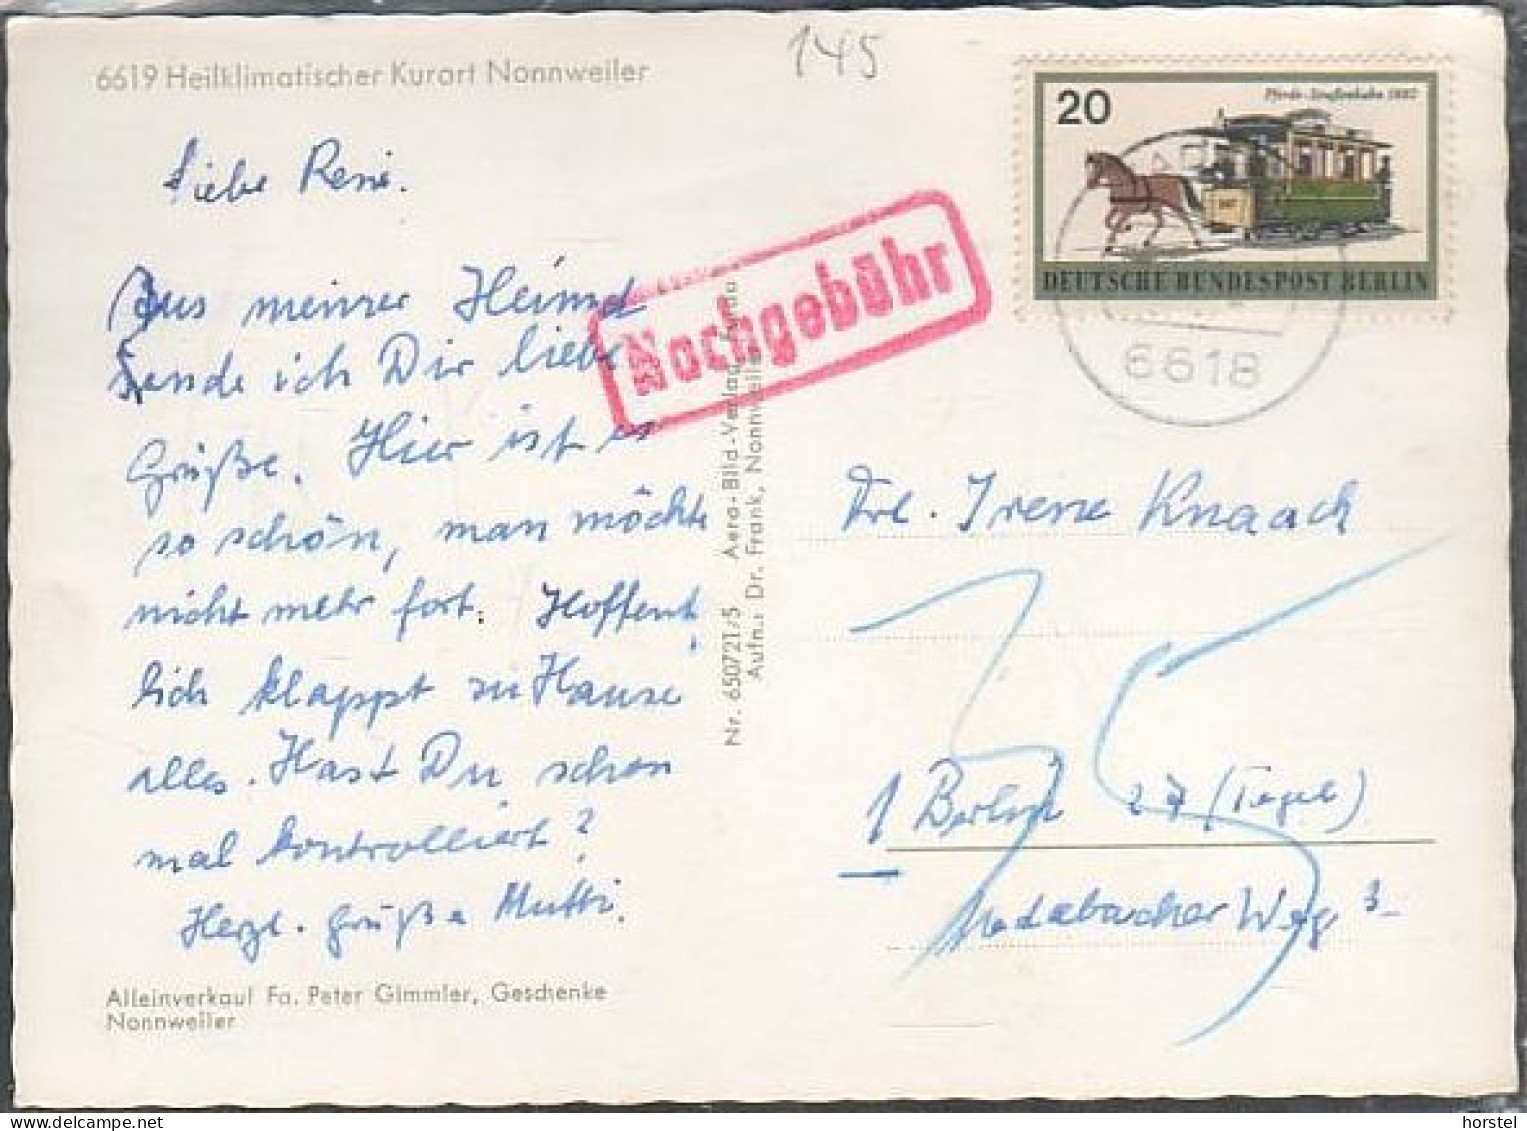 145
6619 Heilklimatischer Kurort Nonnweiler
20
Pferde-Straßenbahn 1882
DEUTSCHE BUNDESPOST BERLIN
6618
Nachgebühr
Liebe René.
Aus meiner Heimat
sende ich Dir liebe
Grüße. Hier ist es
so schön, man möchte
nicht mehr fort. Hoffent
lich klappt zu Hause
alles. Hast Du schon
mal kontrolliert?
Herzl. Grüße Mutti.
Alleinverkauf Fa. Peter Gimmler, Geschenke
Nonnweiler
Nr. 650721/5 Aero-Bild-Verlag, Fulda
Aufn.: Dr. Frank, Nonnweiler
Frl. Irene Knaack
35
1 Berlin 27 (Tegel)
Weg 3
horstel